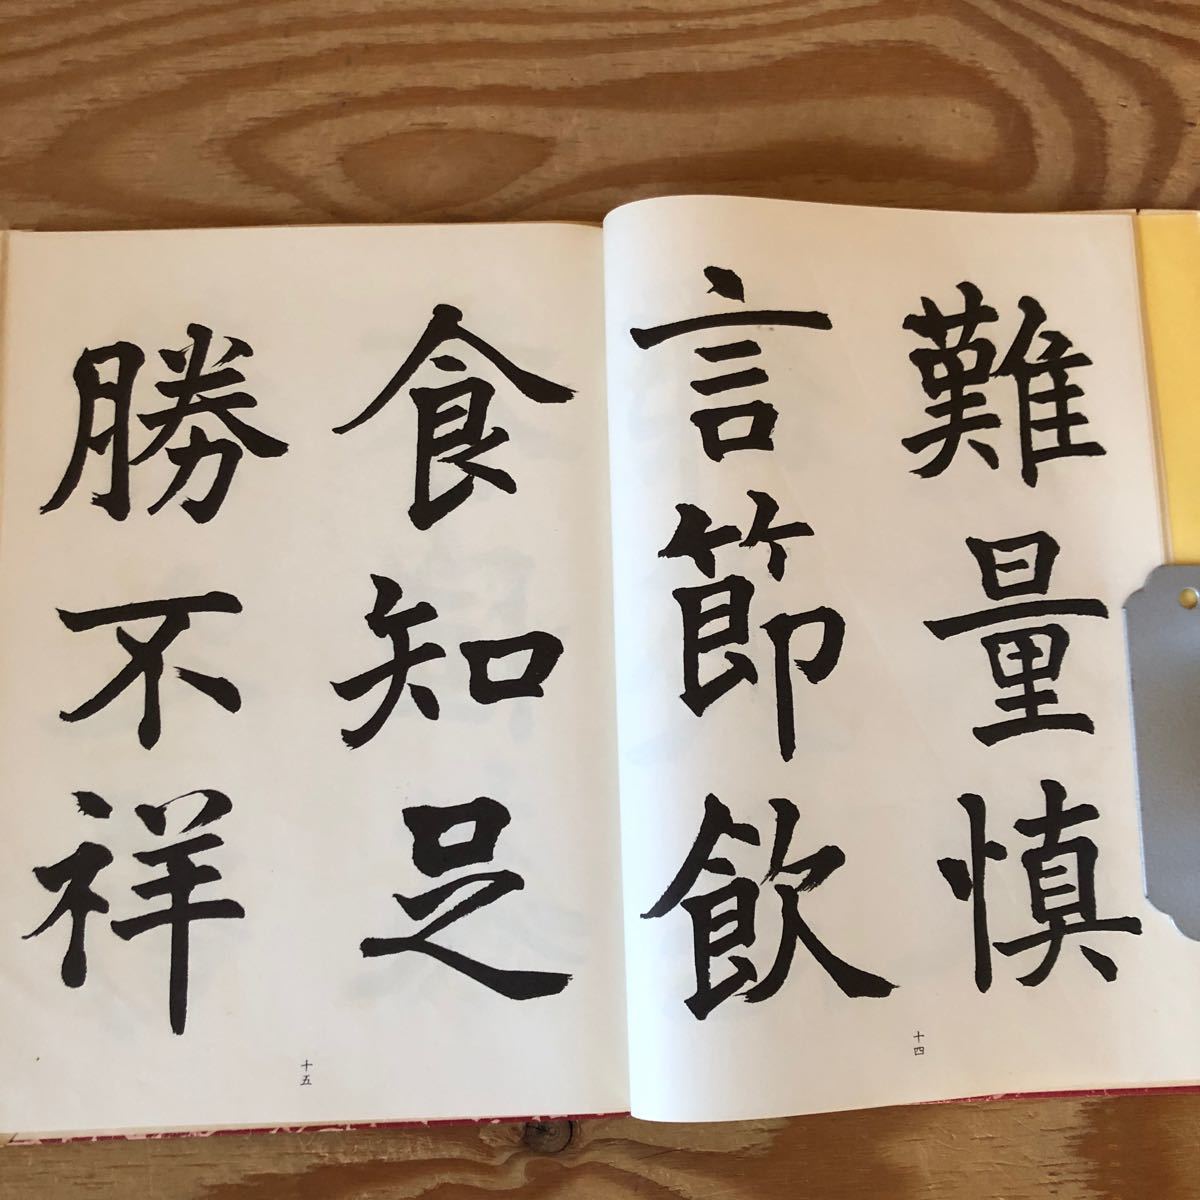 難量慎
言節飲
十四
食知足
勝不祥
十五